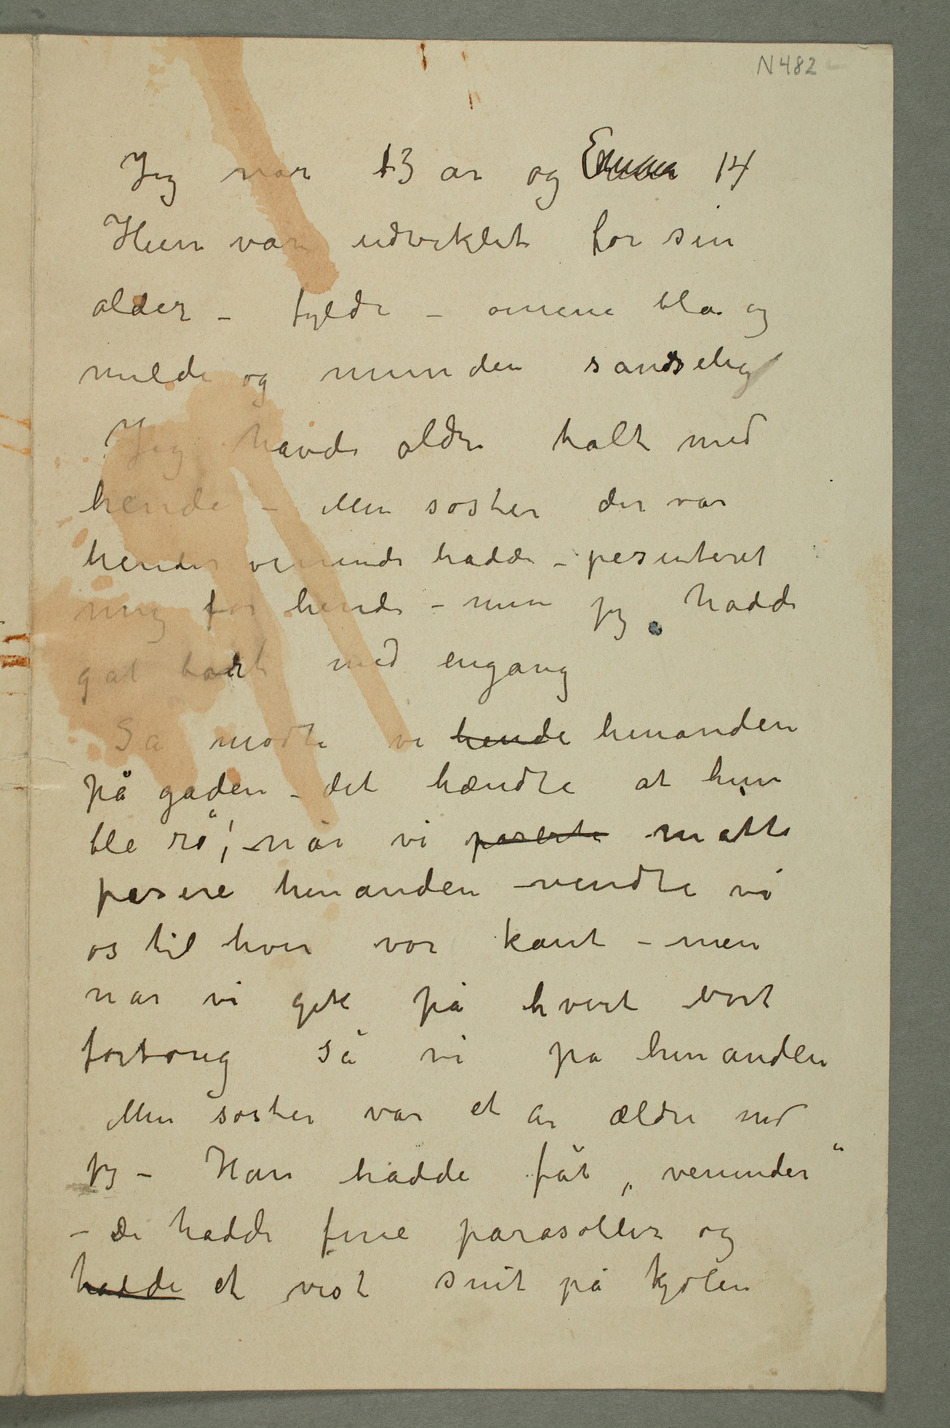 N 482
Jeg var 13 år og Emma 14
Hun var udviklet for sin
alder – fyldi – øinene blå og
milde og munden sandselig
Jeg havde aldri talt med
hende – Min søster der var
hendes veninde hadde – pesenteret
mig for hende – men jeg hadde
gåt bort med engang
Så mødte vi hende hinanden
på gaden – det hændte at hun
ble rø', når vi måtte
pasere hinanden – vendte vi
os til hver vor kant – men
når vi gik på hvert vort
fortoug så vi på hinanden
Min søster var et år ældre end
jeg – Hun hadde fåt „veninder“
– De hadde fine parasoller og
hadde et vist snit på kjolen